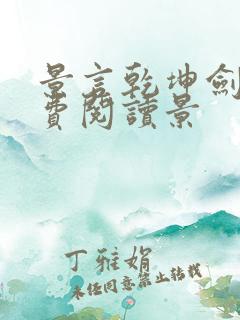 景言乾坤劍
費閱讀景
丁雅娟
未经同意禁止转载